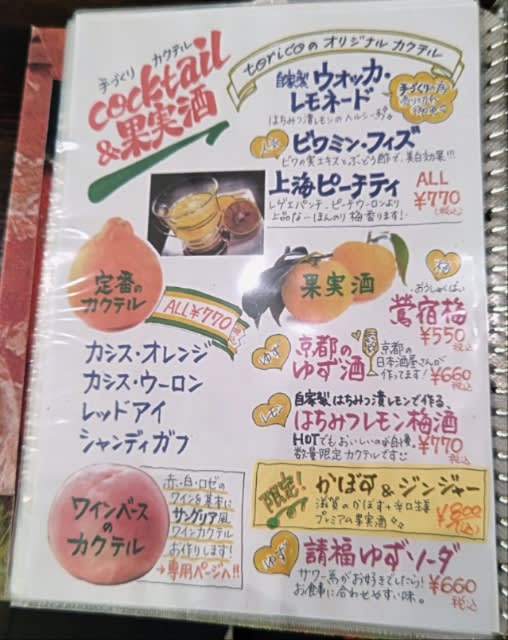 手づくり カクテル
cocktail
&果実酒
toricoのオリジナルカクテル
自家製 ウォッカ・
レモネード
はちみつ漬レモンのヘルシーお酒。
手づくりの為
ビワミン・フィズ
ビワの実エキスとぶどう酢で、美白効果!!!
上海ピーチティ
レゲエパンチ、ピーチウーロンより
上品なーほんのり梅香ります!
ALL
¥770
(税込)
定番の
カクテル
ALL¥770
カシス・オレンジ
カシス・ウーロン
レッドアイ
シャンディガフ
ワインベース
の
カクテル
赤・白・ロゼの
ワインを基本に
サングリア風
ワインカクテル
お作りします!
→専用ページへ!!
果実酒
梅
おうしゅくばい
鶯宿梅
¥550
税込
ゆず
京都の
ゆず酒
京都の
日本酒屋さんが
作ってます!
¥660
税込
自家製 はちみつ漬レモンで作る、
はちみつレモン梅酒
HOTでもおいしいのが自慢、
数量限定カクテルです
¥770
税込
限定!
かぼす&ジンジャー
滋賀のかぼす+辛口生姜
プレミアの果実酒
¥800
税込
ゆず
請福ゆずソーダ
サワー系がお好きでしたら!
お食事に合わせやすい味。
¥660
税込